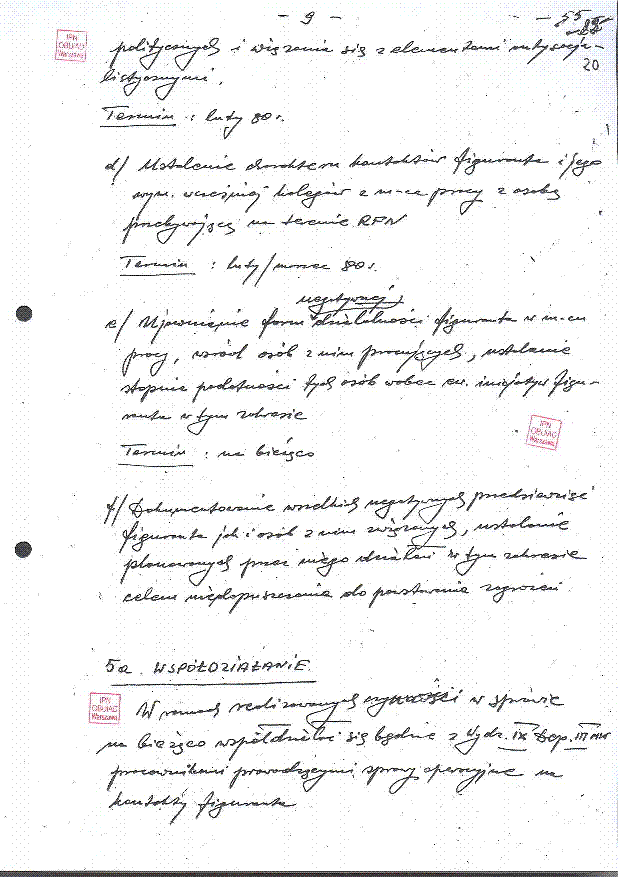 - 9 -
- 55
20
IPN
OBUiAD
Warszawa
politycznych i wiązania się z elementami antysocja-
listycznymi.
Termin : luty 80 r.
d/ Ustalenie charakteru kontaktów figuranta i jego
wym. wcześniej kolegów z m-ca pracy z osobą
przebywającą na terenie RFN
Termin : luty/marzec 80 r.
negatywnej
e/ Ujawnienie form działalności figuranta w m-cu
pracy, wśród osób z nim pracujących, ustalanie
stopnia podatności tych osób wobec ew. inicjatyw figu-
ranta w tym zakresie
IPN
OBUiAD
Warszawa
Termin : na bieżąco
f/ Dokumentowanie wszelkich negatywnych przedsięwzięć
figuranta jak i osób z nim związanych, ustalanie
planowanych przez niego działań w tym zakresie
celem niedopuszczenia do powstawania zagrożeń.
5a. WSPÓŁDZIAŁANIE
IPN
OBUiAD
Warszawa
W ramach realizowanych czynności w sprawie
na bieżąco współdziałać się będzie z Wydz. IX Dep. III MSW
pracownikami prowadzącymi sprawy operacyjne na
kontakty figuranta